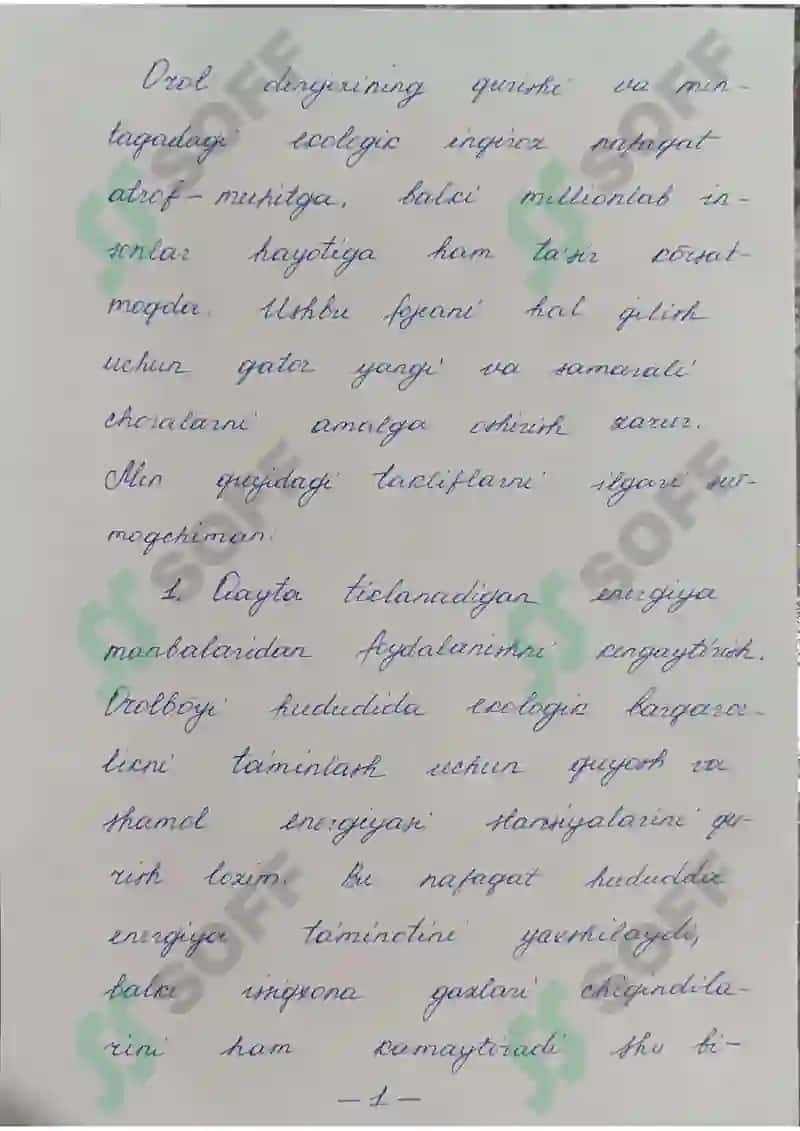 Orol dengizining qurishi va min-
taqadagi ekologik inqiroz nafaqat
atrof-muhitga, balki millionlab in-
sonlar hayotiga ham ta'sir körsat-
moqda. Ushbu fojeani hal qilish
uchun qator yangi va samarali
choralarni amalga oshirish zarur.
Men quyidagi takliflarni ilgari sur-
moqchiman:
1. Qayta tiklanadigan energiya
manbalaridan foydalanishni kengaytirish.
Orolböyi hududida ekologik barqaror-
likni ta'minlash uchun quyosh va
shamol energiyasi stansiyalarini qu-
rish lozim. Bu nafaqat hududda
energiya ta'minotini yaxshilaydi,
balki issiqxona gazlari chiqindila-
rini ham kamaytiradi shu bi-
- 1 -
SOFF
SOFF
SOFF
SOFF
SOFF
SOFF